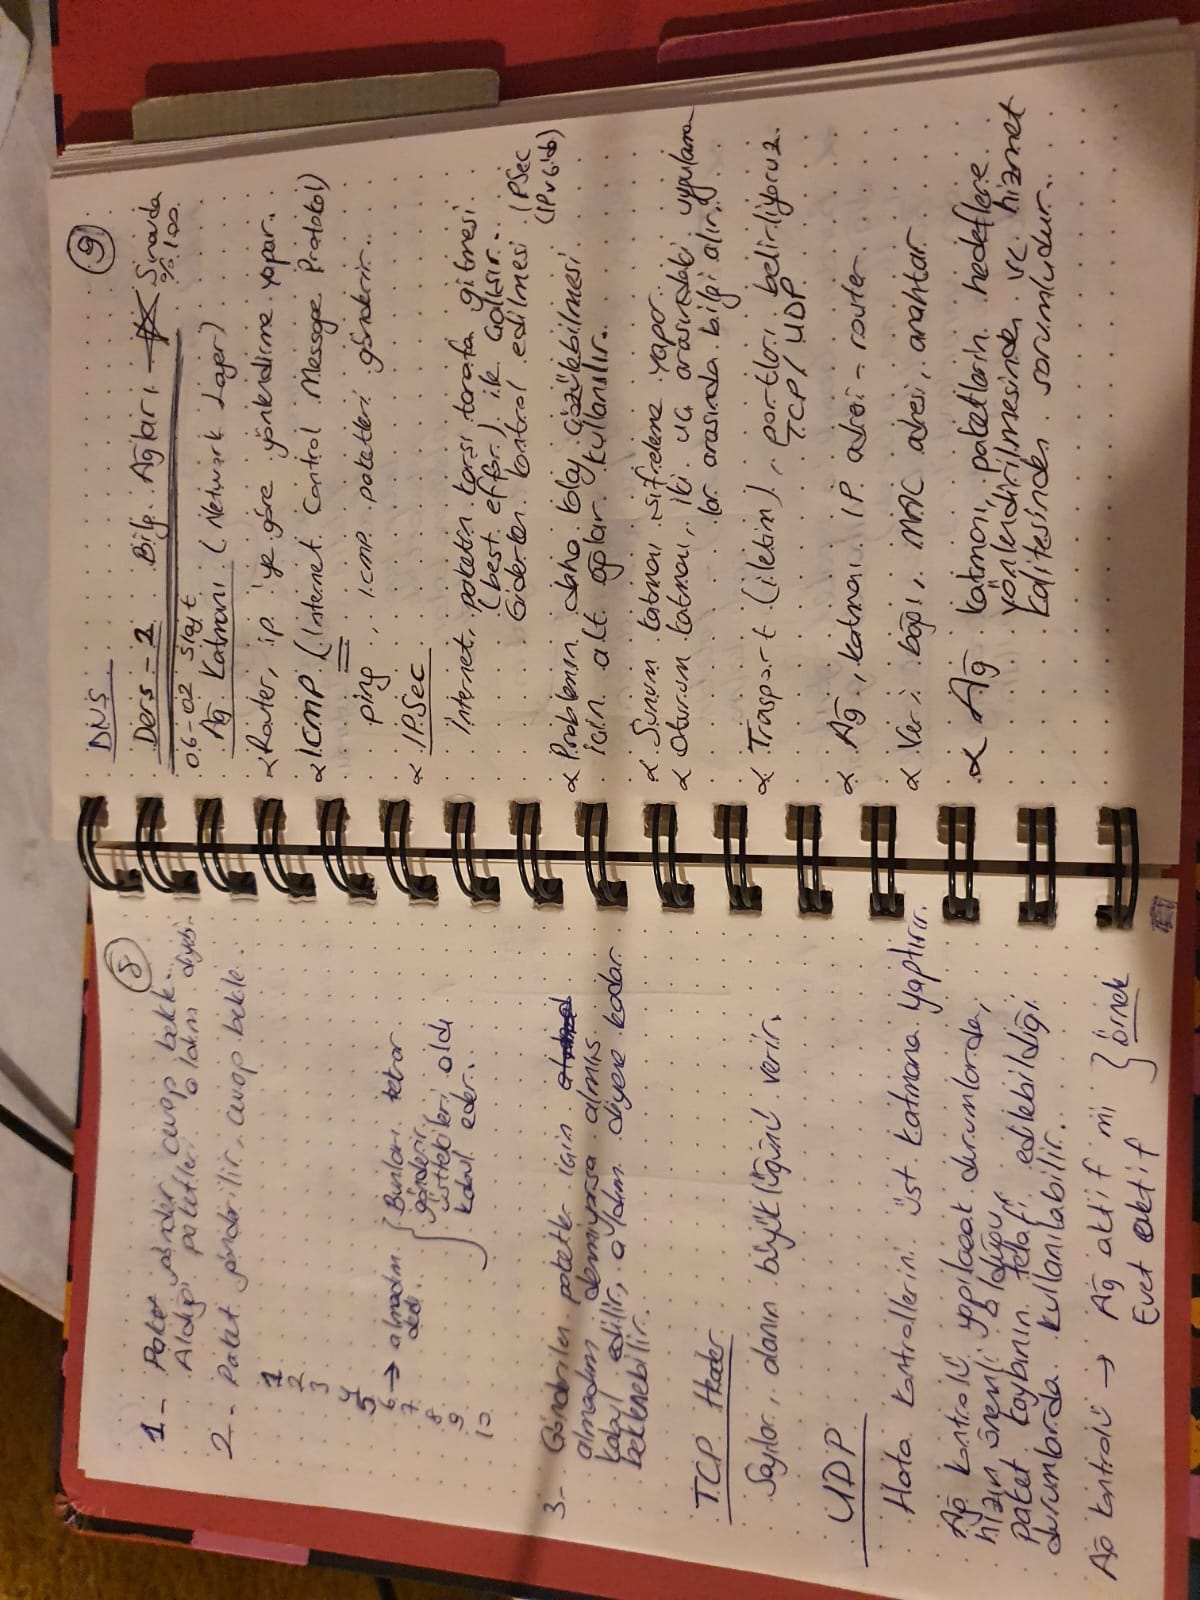 8
1- Paket gönder, cevap bekle.
Aldığı paketleri aldım diyebi-
2- Paket gönderilir, cevap bekle.
1
2
3
4
5
6 → almadım
dedi.
7
8
9
10
Bunları tekrar
gönderir.
üsttekileri aldı
kabul eder.
3- Gönderilen paketler için
almadım demiyorsa almış
kabul edilir, aldım diyene kadar
beklenebilir.
TCP Header
Sayılar, alanın büyüklüğünü verir.
UDP
Hata kontrollerini üst katmana yaptırır.
Ağ kontrolü yapılacak durumlarda,
hızın önemli olduğu,
paket kaybının telafi edilebildiği
durumlarda kullanılabilir.
Ağ kontrolü → Ağ aktif mi
Evet aktif
} örnek
9
DNS
Ders-2 Bilg. Ağları
Sınavda
%100
06-02 slayt
Ağ Katmanı (Network Layer)
α Router, ip'ye göre yönlendirme yapar.
α ICMP (Internet Control Message Protokol)
ping, ICMP paketleri gönderir.
α IPSec
İnternet, paketin karşı tarafa gitmesi
(best effor.) ile çalışır.
Giderken kontrol edilmesi IPSec
(IPv6'da)
α Problemin daha kolay çözülebilmesi
için alt ağlar kullanılır.
α Sunum katmanı şifreleme yapar.
α Oturum katmanı, iki uç arasındaki uygulama
lar arasında bilgi alır.
α Trasport (iletim), portları belirliyoruz.
TCP/UDP
α Ağ, katmanı IP adresi - router
α Veri bağı, MAC adresi, anahtar
α Ağ katmanı, paketlerin hedeflere
yönlendirilmesinden ve hizmet
kalitesinden sorumludur.